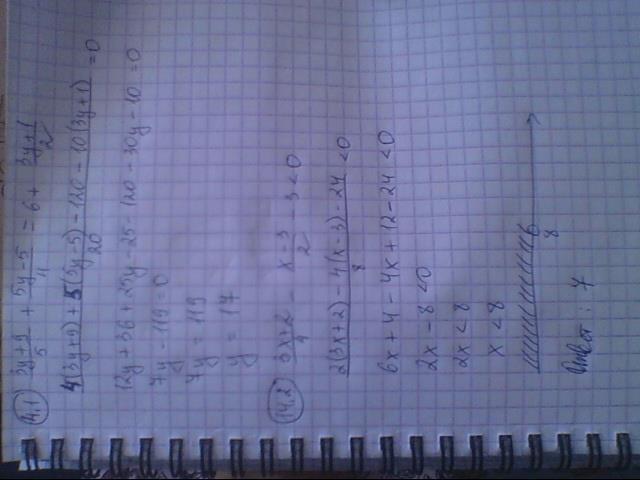 4.1 (3y+9)/5 + (5y-5)/4 = 6 + (3y+1)/2
(4(3y+9)+5(5y-5)-120-10(3y+1))/20 = 0
12y+36+25y-25-120-30y-10=0
7y-119=0
7y=119
y=17
14.2 (3x+2)/4 - (x-3)/2 - 3<0
(2(3x+2)-4(x-3)-24)/8 <0
6x+4-4x+12-24<0
2x-8<0
2x<8
x<8
8
Ответ: 7